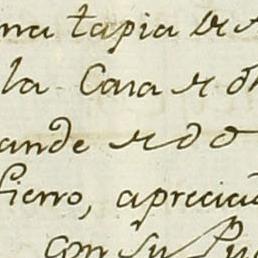 una tapia de
la Casa de
ande
fierro, aprecia
con su Pu